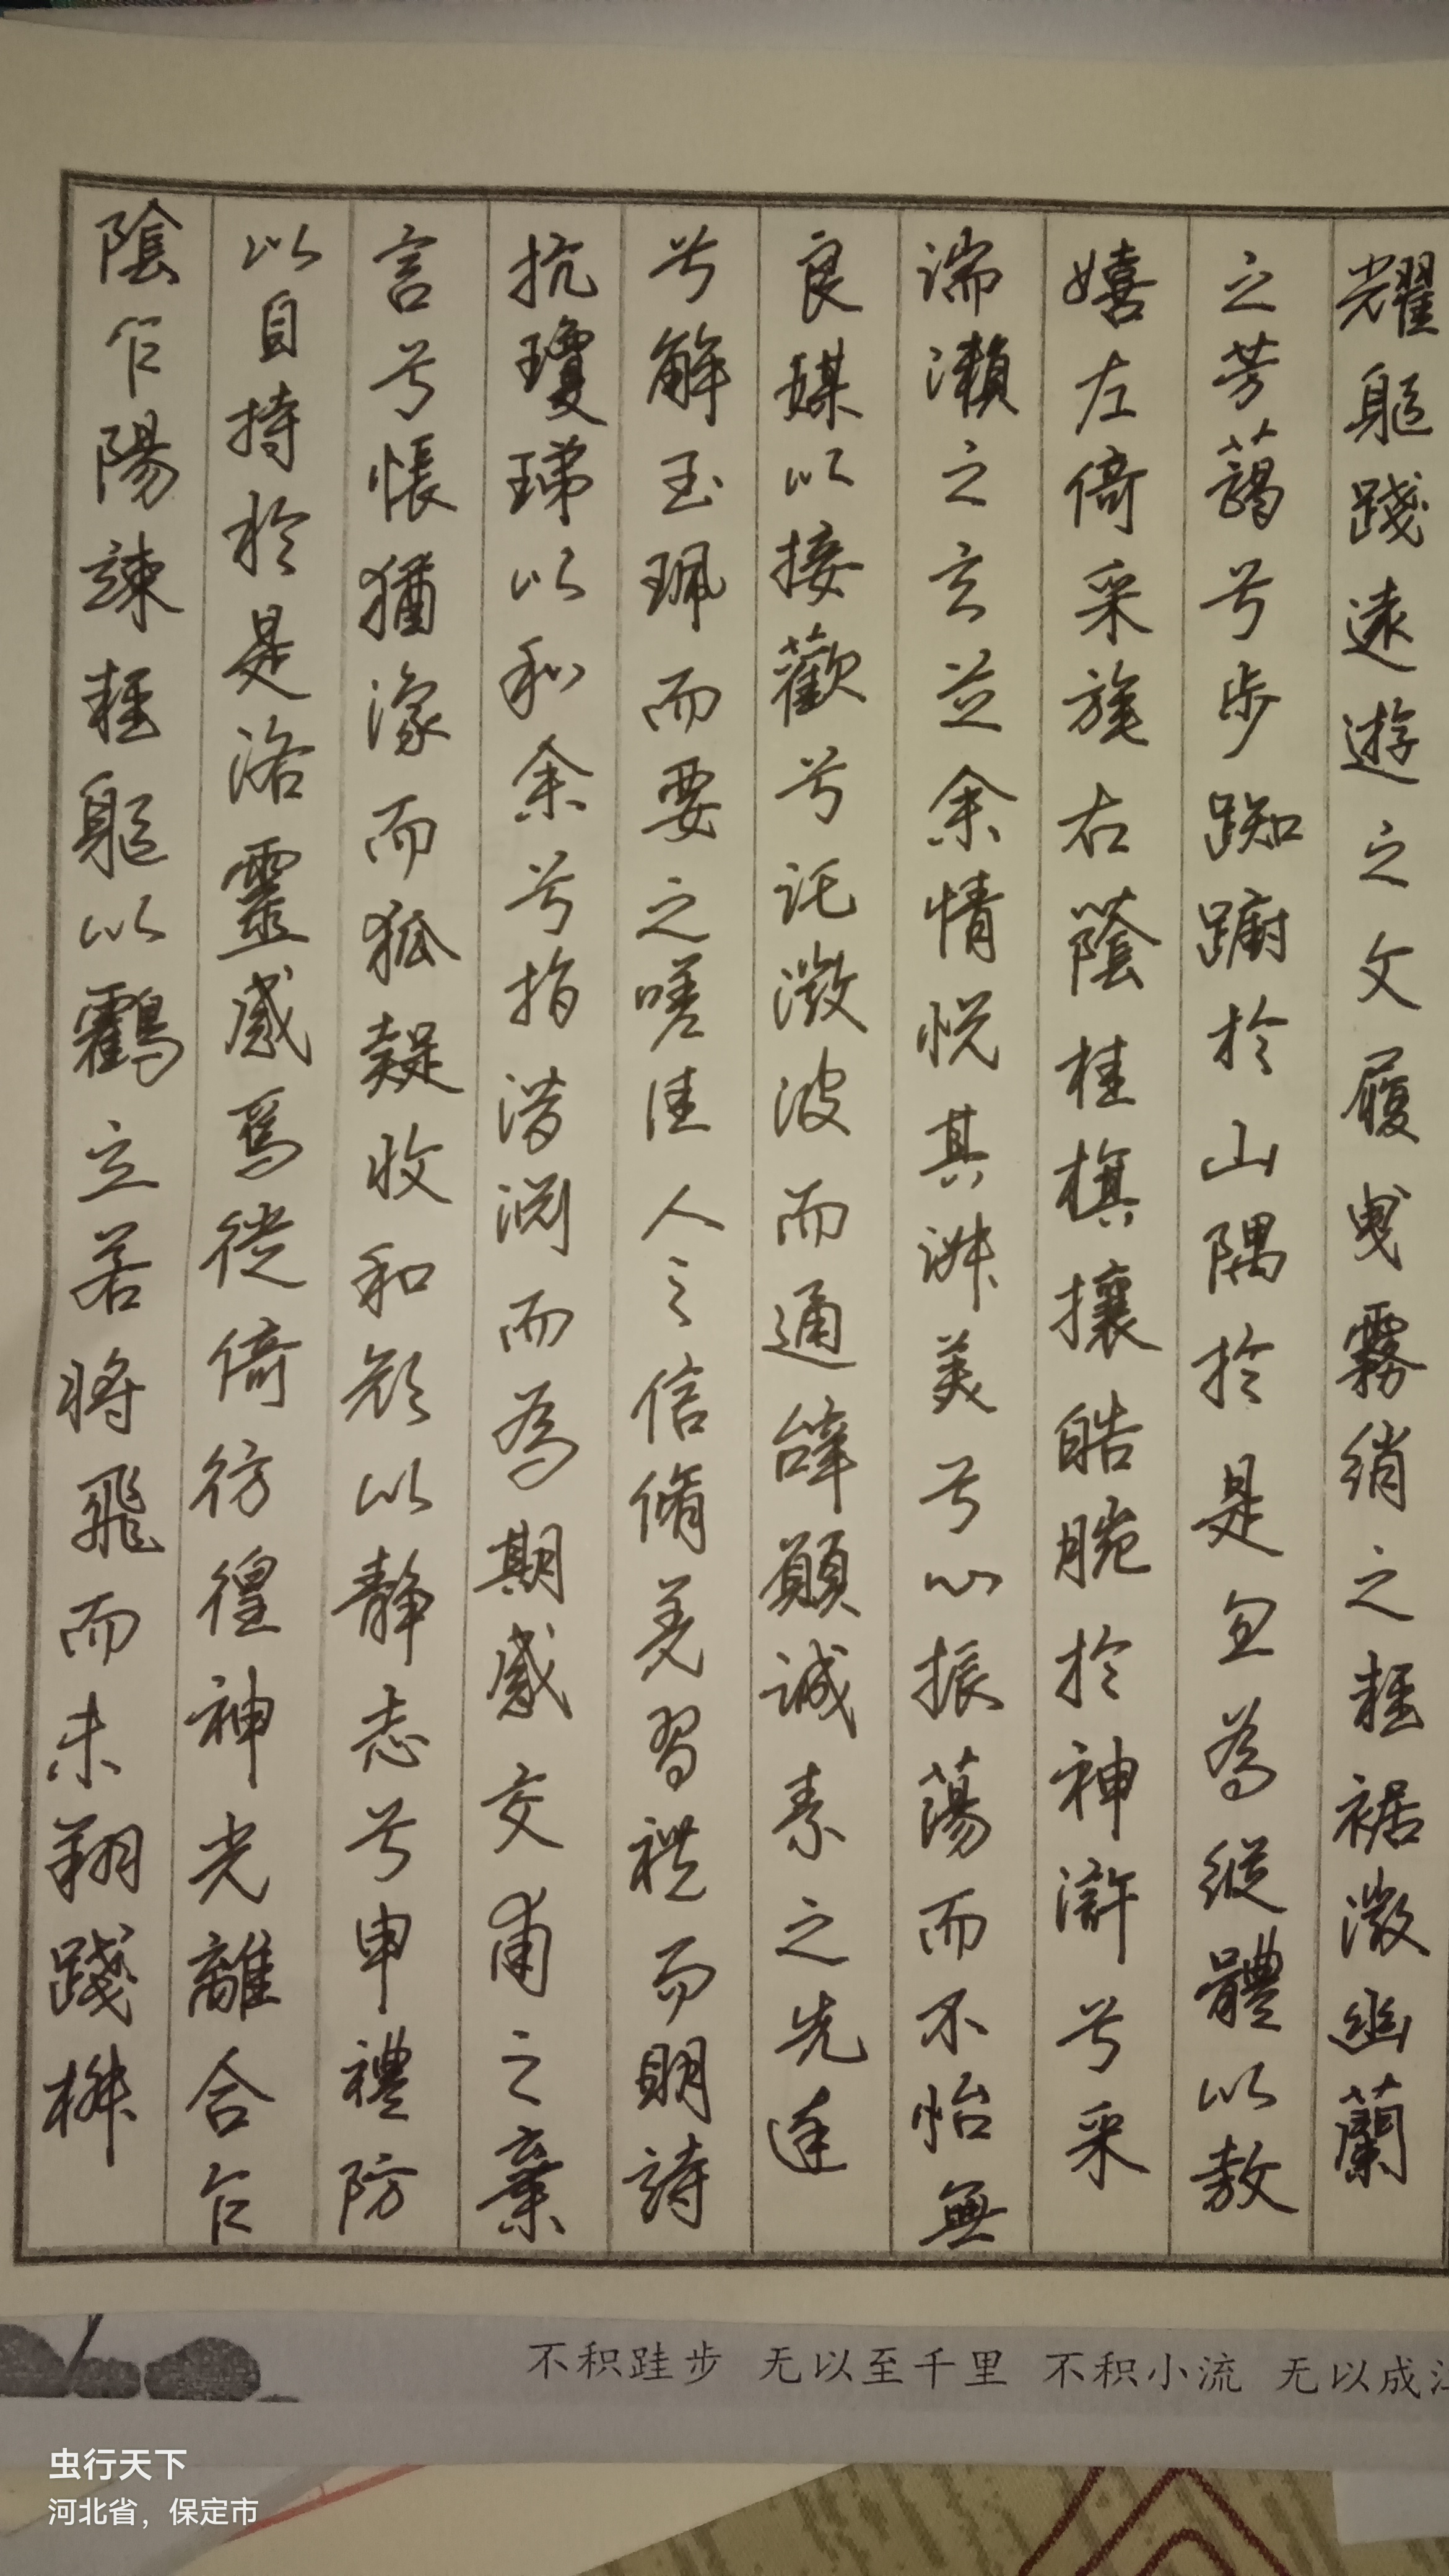 耀軀踐遠遊之文履曳霧綃之輕裾微幽蘭
之芳藹兮步踟躕於山隅於是忽為縱體以敖
嬉左倚采旄右蔭桂旗攘皓腕於神滸兮采
湍瀨之玄芝余情悅其淑美兮心振蕩而不怡無
良媒以接歡兮託微波而通辭願誠素之先達
兮解玉珮而要之嗟佳人之信脩羌習禮而明詩
抗瓊珶以和余兮指潛淵而為期感交甫之棄
言兮悵猶豫而狐疑收和顏以靜志兮申禮防
以自持於是洛靈感焉徙倚彷徨神光離合乍
陰乍陽竦輕軀以鶴立若將飛而未翔踐椒
不积跬步 无以至千里 不积小流 无以成江
虫行天下
河北省，保定市